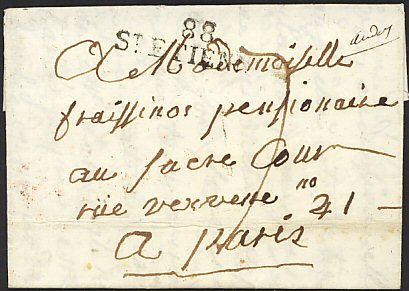 88
ST ETIENNE
A Mademoiselle
fraissinos pensionaire
au sacre Cour
rue vervene no 41
a paris